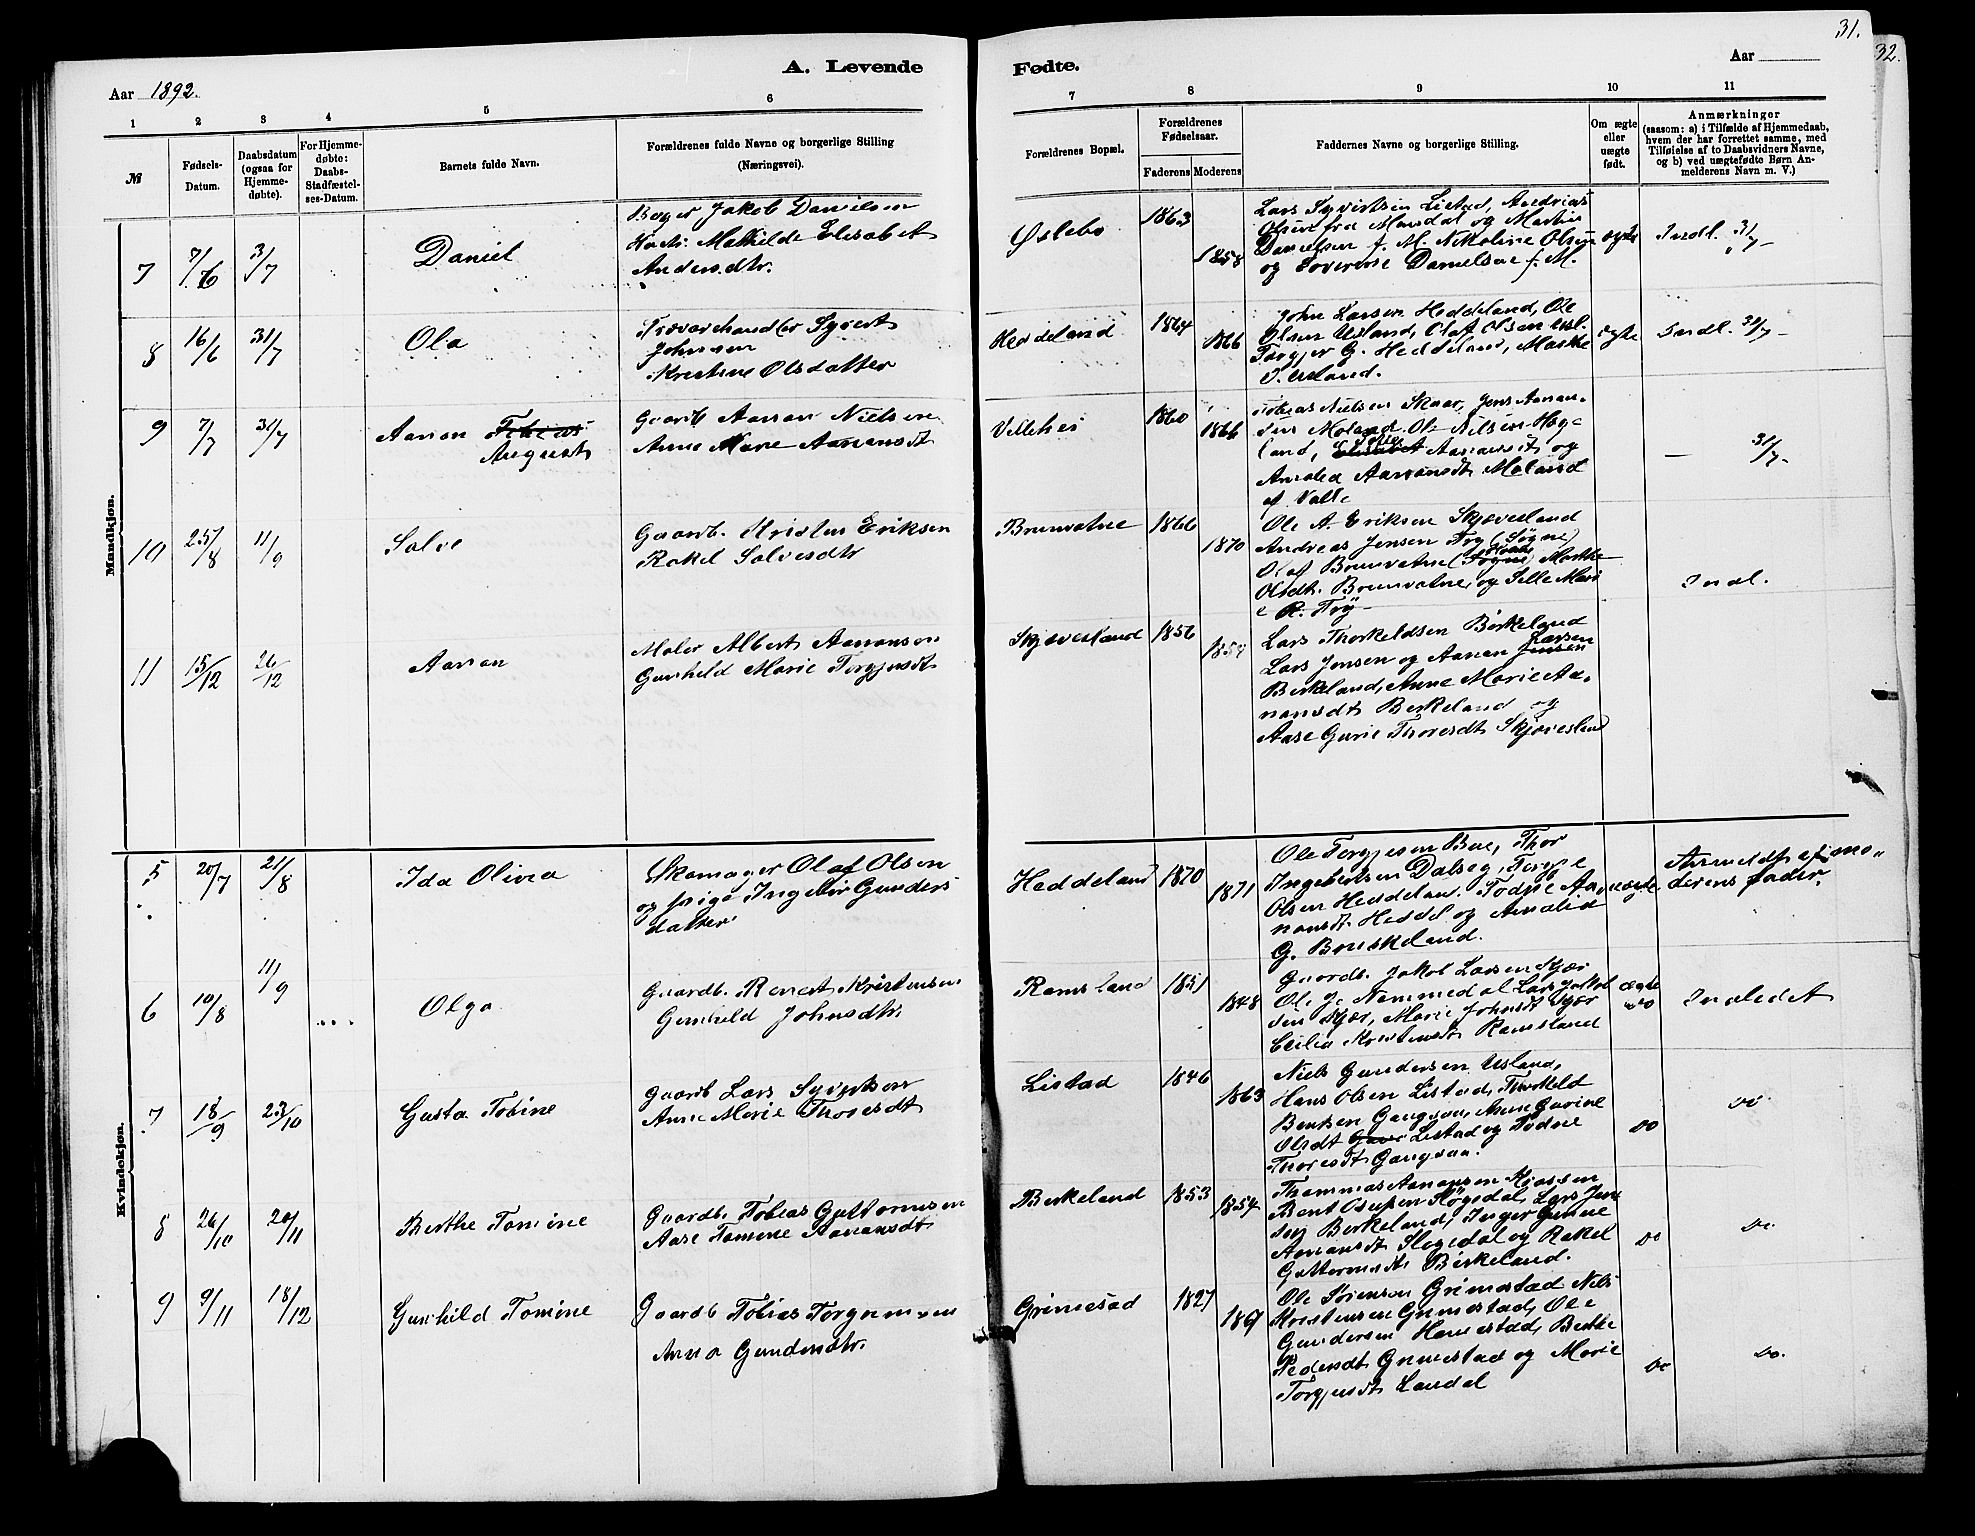 31.
32.
A. Levende Fødte.
Aar 1892.
Aar
1 2 3 4 5 6 7 8 9 10 11
№
Fødsels-Datum.
Daabsdatum (ogsaa for Hjemme-døbte).
For Hjemme-døbte: Daabs-Stadfæstel-ses-Datum.
Barnets fulde Navn.
Forældrenes fulde Navne og borgerlige Stilling (Næringsvei).
Forældrenes Bopæl.
Forældrenes Fødselsaar.
Faderens Moderens
Faddernes Navne og borgerlige Stilling.
Om ægte eller uægte født.
Anmærkninger
(saasom: a) i Tilfælde af Hjemmedaab,
hvem der har forrettet samme, med
Tilføielse af to Daabsvidners Navne,
og b) ved uægtefødte Børn An-
melderens Navn m. V.)
Mandkjøn.
7 7/6 31/7 Daniel
Bager Jakob Danielsen
Mathilde Elisabet
Andersdtr.
Øslebø 1863 1858
Lars Syvertsen Listad, Andreas
Olsen fra Mandal og Martin
Danielsen f. M. Nikoline Olsen
og Severine Danielsen f. M.
ægte Indl. 31/7
8 16/6 31/7 Ola
Trævarehandler Syvert
Johnsen
Kristine Olsdatter
Heddeland 1864 1866
John Larsen Heddeland, Ole
Olsen Usland, Olaf Olsen Usl.
Torgjer G. Heddeland, Marthe
O. Usland.
ægte Indl. 31/7
9 7/7 31/7 Aanan Tobias
August
Gaardb Aanan Nielsen
Anne Marie Aanansdt
1860 1866
Tobias Nielsen Skaar, Jens Aanan-
sen Moland, Ole Nilsen Høge
land, Elisabet Aanansdt og
Amalia Aanansdt Moland
af Valle
31/7
10 25/8 11/9 Salve
Gaardb. Kristen Eriksen
Rakel Salvesdtr
Brunvatne 1866 1870
Ole A. Eriksen Skjævesland
Andreas Jensen Try (Søgne)
Olaf Brunvatne (Søgne) Marthe
Olsdtr. Brunvatne, og Sille Mari
e R. Try
Indl.
11 15/12 26/12 Aanan
Maler Albert Aanansen
Gunhild Marie Torgjusdt
Skjævesland 1856 1854
Lars Thorkeldsen Birkeland
Larsen
Lars Jensen og Aanan Jensen
Birkeland, Anne Marie Aa-
nansdt Birkeland og
Aase Gurie Thoresdt Skjævesland
Kvindekjøn.
5 20/7 21/8 Ida Olivia
Skomager Olaf Olsen
og pige Ingebor Gunders
datter
Heddeland 1870 1871
Ole Torgjesen Bue, Thor
Ingebretsen Dalseg, Torgje
Olsen Heddelan. Todne Aa
nansdt. Heddel og Amalia
G. Bruskeland.
uægte Anmeldt af mo-
derens fader.
6 10/8 11/9 Olga
Gaardb. Reinert Kristensen
Gunhild Johnsdtr.
Ramsland 1851 1848
Gaardb. Jakob Larsen Kjær
Ole J. Nommedal Lars Jakob
sen Kjær, Marie Johnsdt Kjær
Cecilia Kristensdt Ramsland
ægte do Indledet
7 18/9 23/10 Gusta Tobine
Gaardb Lars Syvertsen
Anne Marie Thoresdt
Listad 1846 1863
Niels Gundersen Usland,
Hans Olsen Listad, Thorkeld
Bentsen Gangsaa, Anne Gurine
Olsdt Listad og Todne
Thoresdt Gangsaa.
do do.
8 26/10 20/11 Berthe Tomine
Gaardb. Tobias Guttormsen
Aase Tomine Aanansdt
Birkeland 1853 1854
Thommas Aanansen
Bent Osuldsen Høgedal, Lars Jen
sen Birkeland, Inger Gurine
Aanansdt Slogedal og Rakel
Guttormsdt. Birkeland.
do do.
9 9/11 18/12 Gunhild Tomine
Gaardb Tobias Torgjersen
Anna Gundersdtr.
Grimestad 1827
Ole Sørensen Grimestad Nils
Kristensen Grimestad, Ole
Gundersen Homestad, Berthe
Pedersdt Grimestad og Marie
Torgjusdt Laudal
do do.